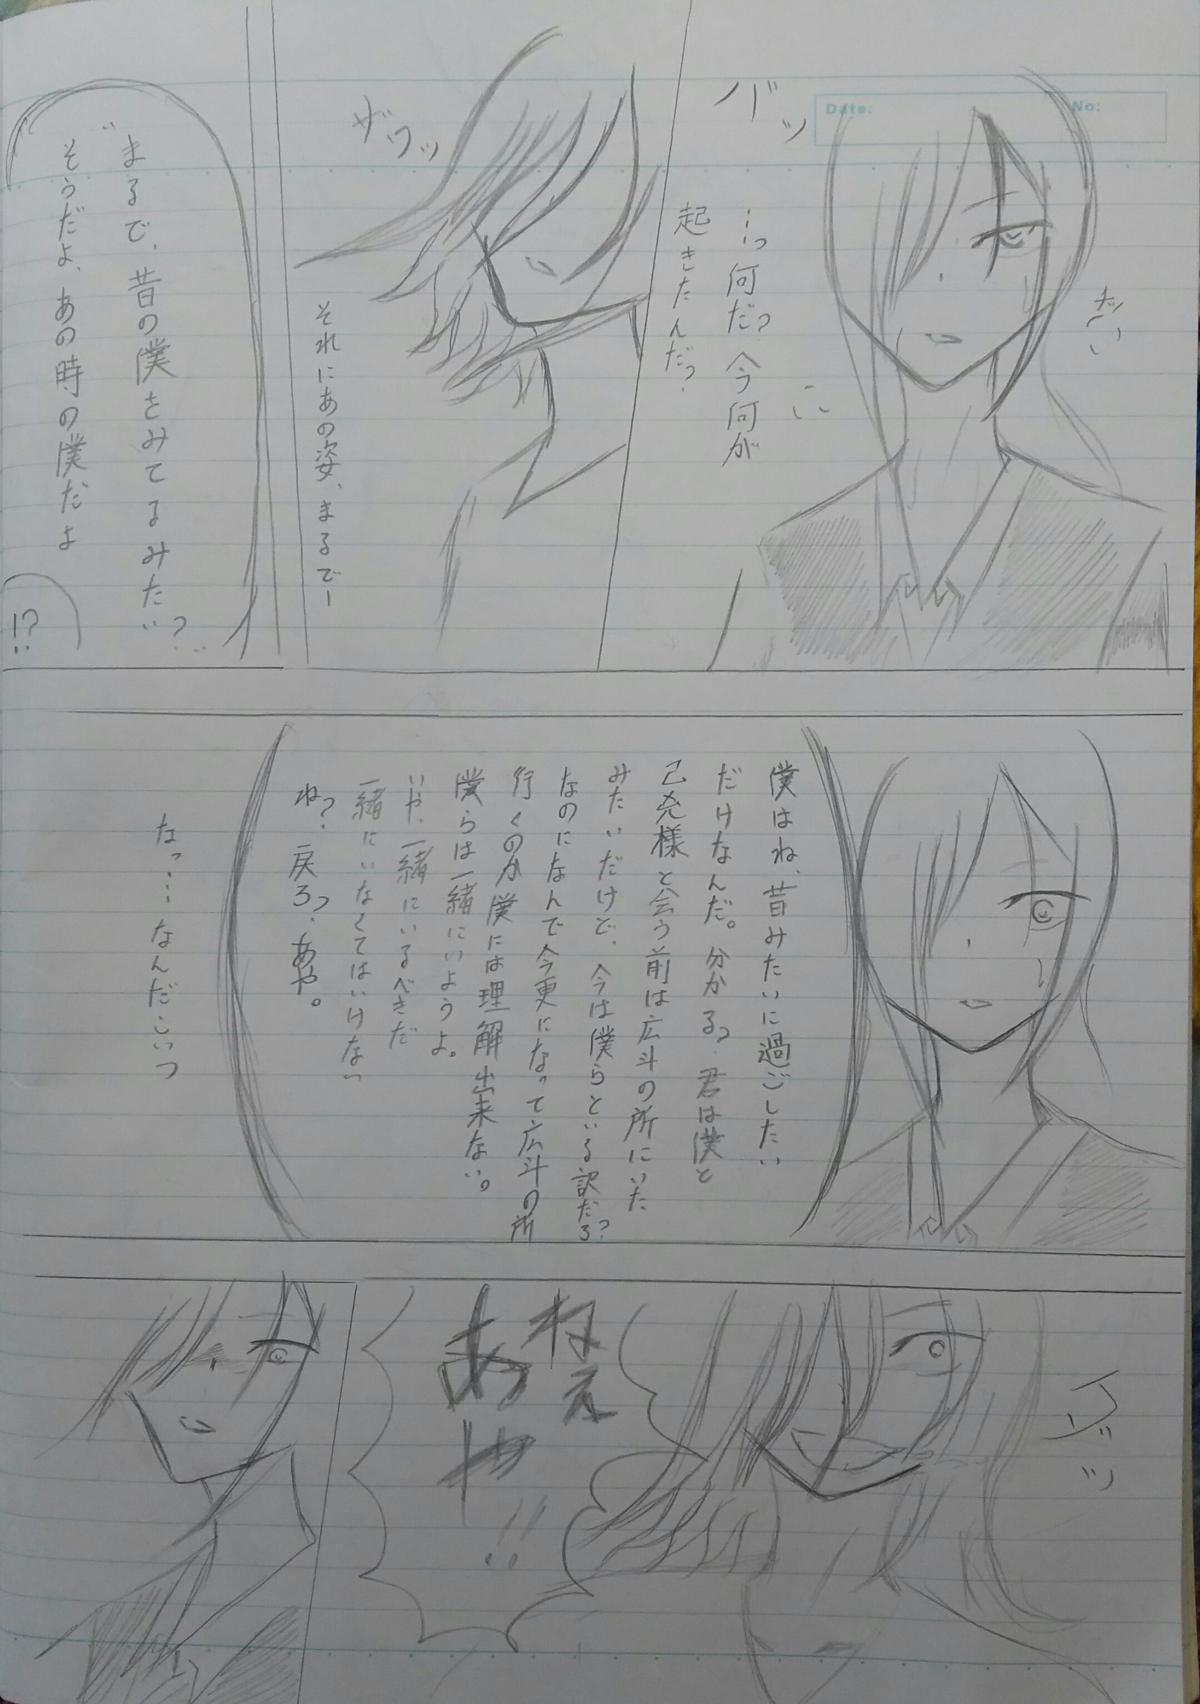 Date:
No:
バッ
…っ何だ?今何が
起きたんだっ?
ザワッ
それにあの姿、まるでー
"まるで、昔の僕をみてるみたい"?
そうだよ、あの時の僕だよ
!?
僕はね、昔みたいに過ごしたい
だけなんだ。分かるっ?君は僕と
会う前は広斗の所にいた
みたいだけど、今は僕らといる訳だろ?
なのになんで今更になって広斗の所
行くのか僕には理解出来ない。
僕らは一緒にいようよ。
いや、一緒にいるべきだ
一緒にいなくてはいけない
ね?、戻ろっ?、あや。
なっ……なんだこいつ
ねぇ
あや!!